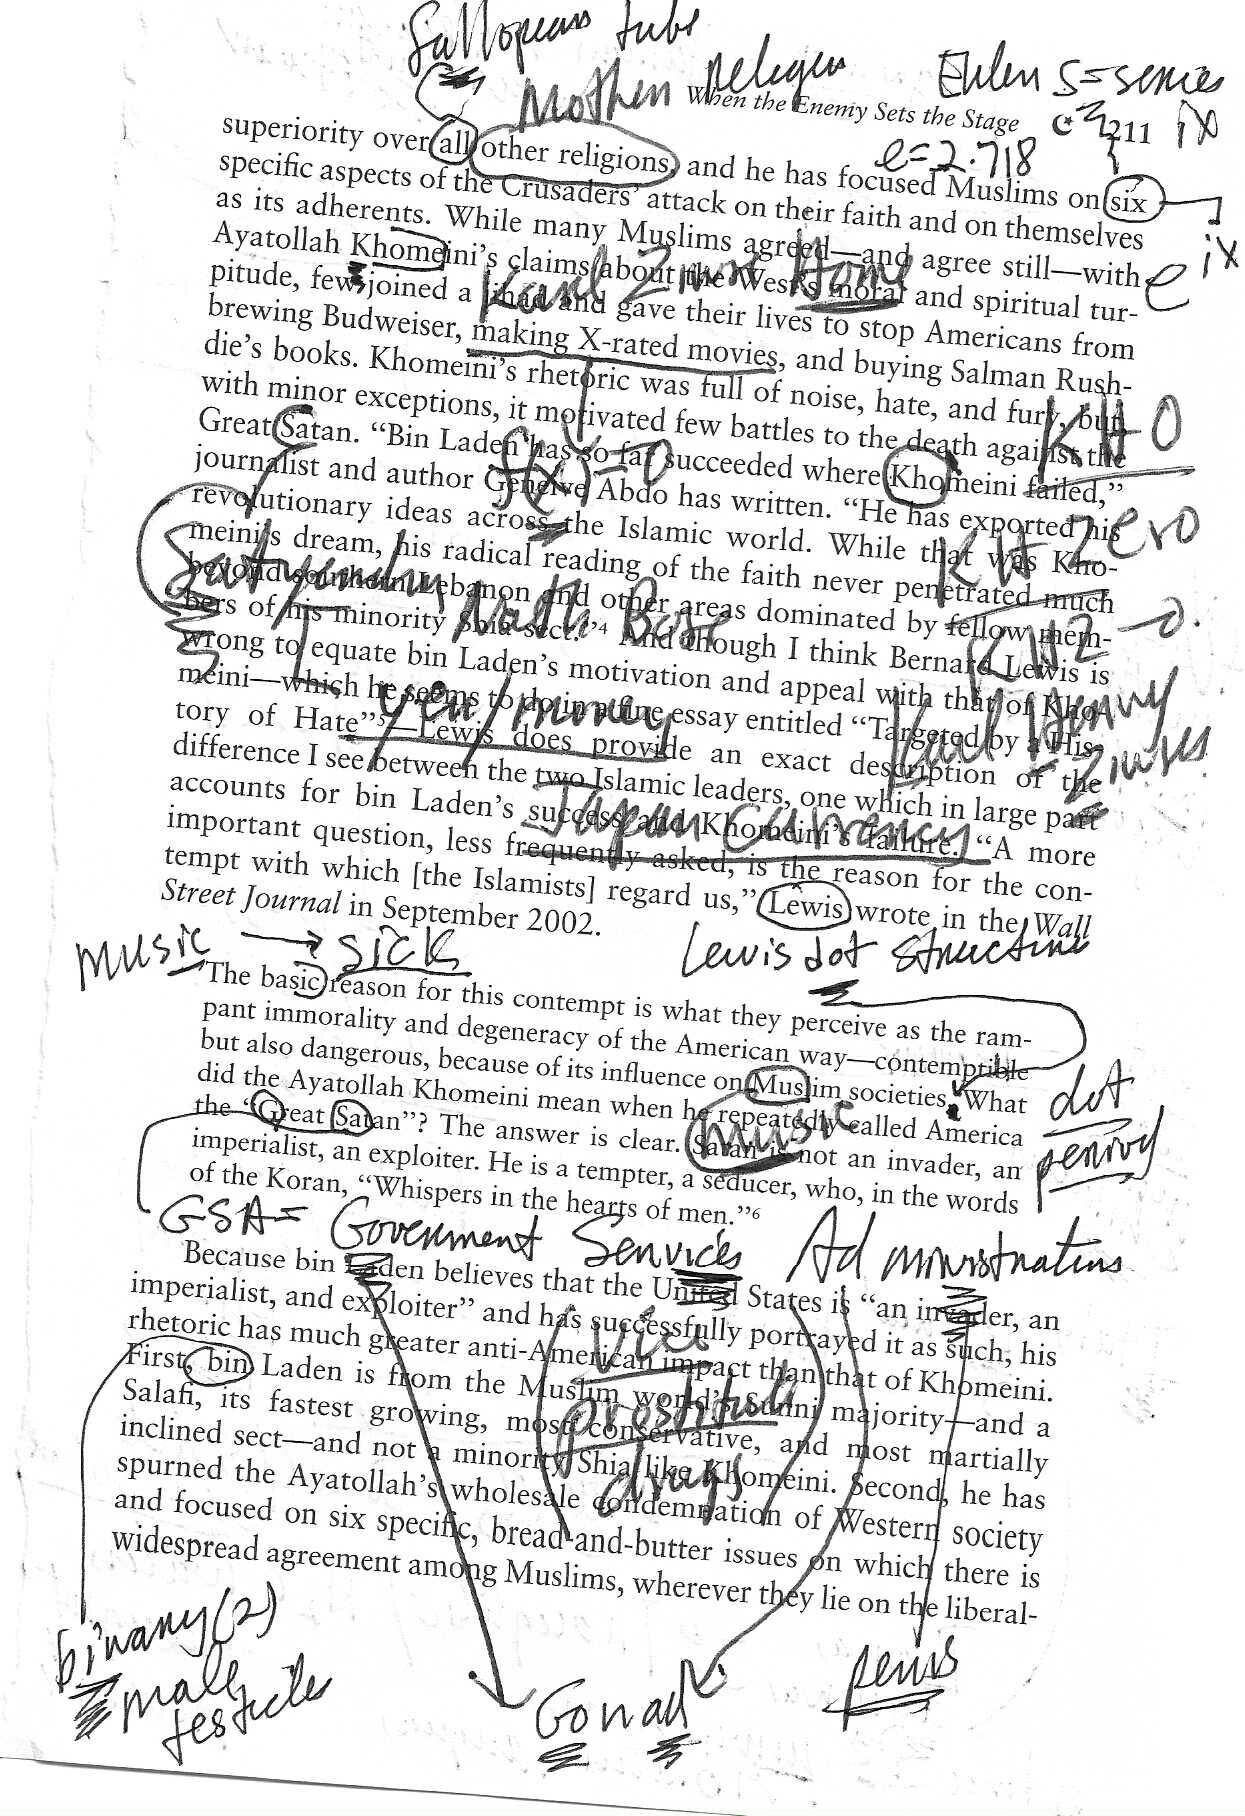 fallopeans tube
Mothen Relegeus
Eulen s=senies
When the Enemy Sets the Stage 211 ix
e=2.718
superiority over all other religions, and he has focused Muslims on six
specific aspects of the Crusaders' attack on their faith and on themselves
as its adherents. While many Muslims agreed—and agree still—with
e ix
Ayatollah Khomeini's claims about the West's moral and spiritual tur-
Karl Zinse Home
pitude, few joined a jihad and gave their lives to stop Americans from
brewing Budweiser, making X-rated movies, and buying Salman Rush-
die's books. Khomeini's rhetoric was full of noise, hate, and fury, but,
with minor exceptions, it motivated few battles to the death against the
KHO
Great Satan. "Bin Laden has so far succeeded where Khomeini failed,"
f(x)=0
journalist and author Geneive Abdo has written. "He has exported his
revolutionary ideas across the Islamic world. While that was Kho-
KH Zero
meini's dream, his radical reading of the faith never penetrated much
Satyendra Nath Bose
beyond southern Lebanon and other areas dominated by fellow mem-
bers of his minority Shia sect."4 And though I think Bernard Lewis is
KHZ
wrong to equate bin Laden's motivation and appeal with that of Kho-
meini—which he seems to do in a fine essay entitled "Targeted by a His-
yen/money
Karl Henny Zinses
tory of Hate"5—Lewis does provide an exact description of the
difference I see between the two Islamic leaders, one which in large part
accounts for bin Laden's success and Khomeini's failure. "A more
Japan Currency
important question, less frequently asked, is the reason for the con-
tempt with which [the Islamists] regard us," Lewis wrote in the Wall
Street Journal in September 2002.
music → sick
Lewis dot structure
The basic reason for this contempt is what they perceive as the ram-
pant immorality and degeneracy of the American way—contemptible
but also dangerous, because of its influence on Muslim societies. What
dot
did the Ayatollah Khomeini mean when he repeatedly called America
music
the "Great Satan"? The answer is clear. Satan is not an invader, an
peniod
imperialist, an exploiter. He is a tempter, a seducer, who, in the words
of the Koran, "Whispers in the hearts of men."6
GSA= Government Senvices Administnations
Because bin Laden believes that the United States is "an invader, an
imperialist, and exploiter" and has successfully portrayed it as such, his
rhetoric has much greater anti-American impact than that of Khomeini.
Vice
First, bin Laden is from the Muslim world's Sunni majority—and a
prostitute
Salafi, its fastest growing, most conservative, and most martially
inclined sect—and not a minority Shia like Khomeini. Second, he has
drugs
spurned the Ayatollah's wholesale condemnation of Western society
and focused on six specific, bread-and-butter issues on which there is
widespread agreement among Muslims, wherever they lie on the liberal-
binany(2)
male
testicles
Gonad
penis